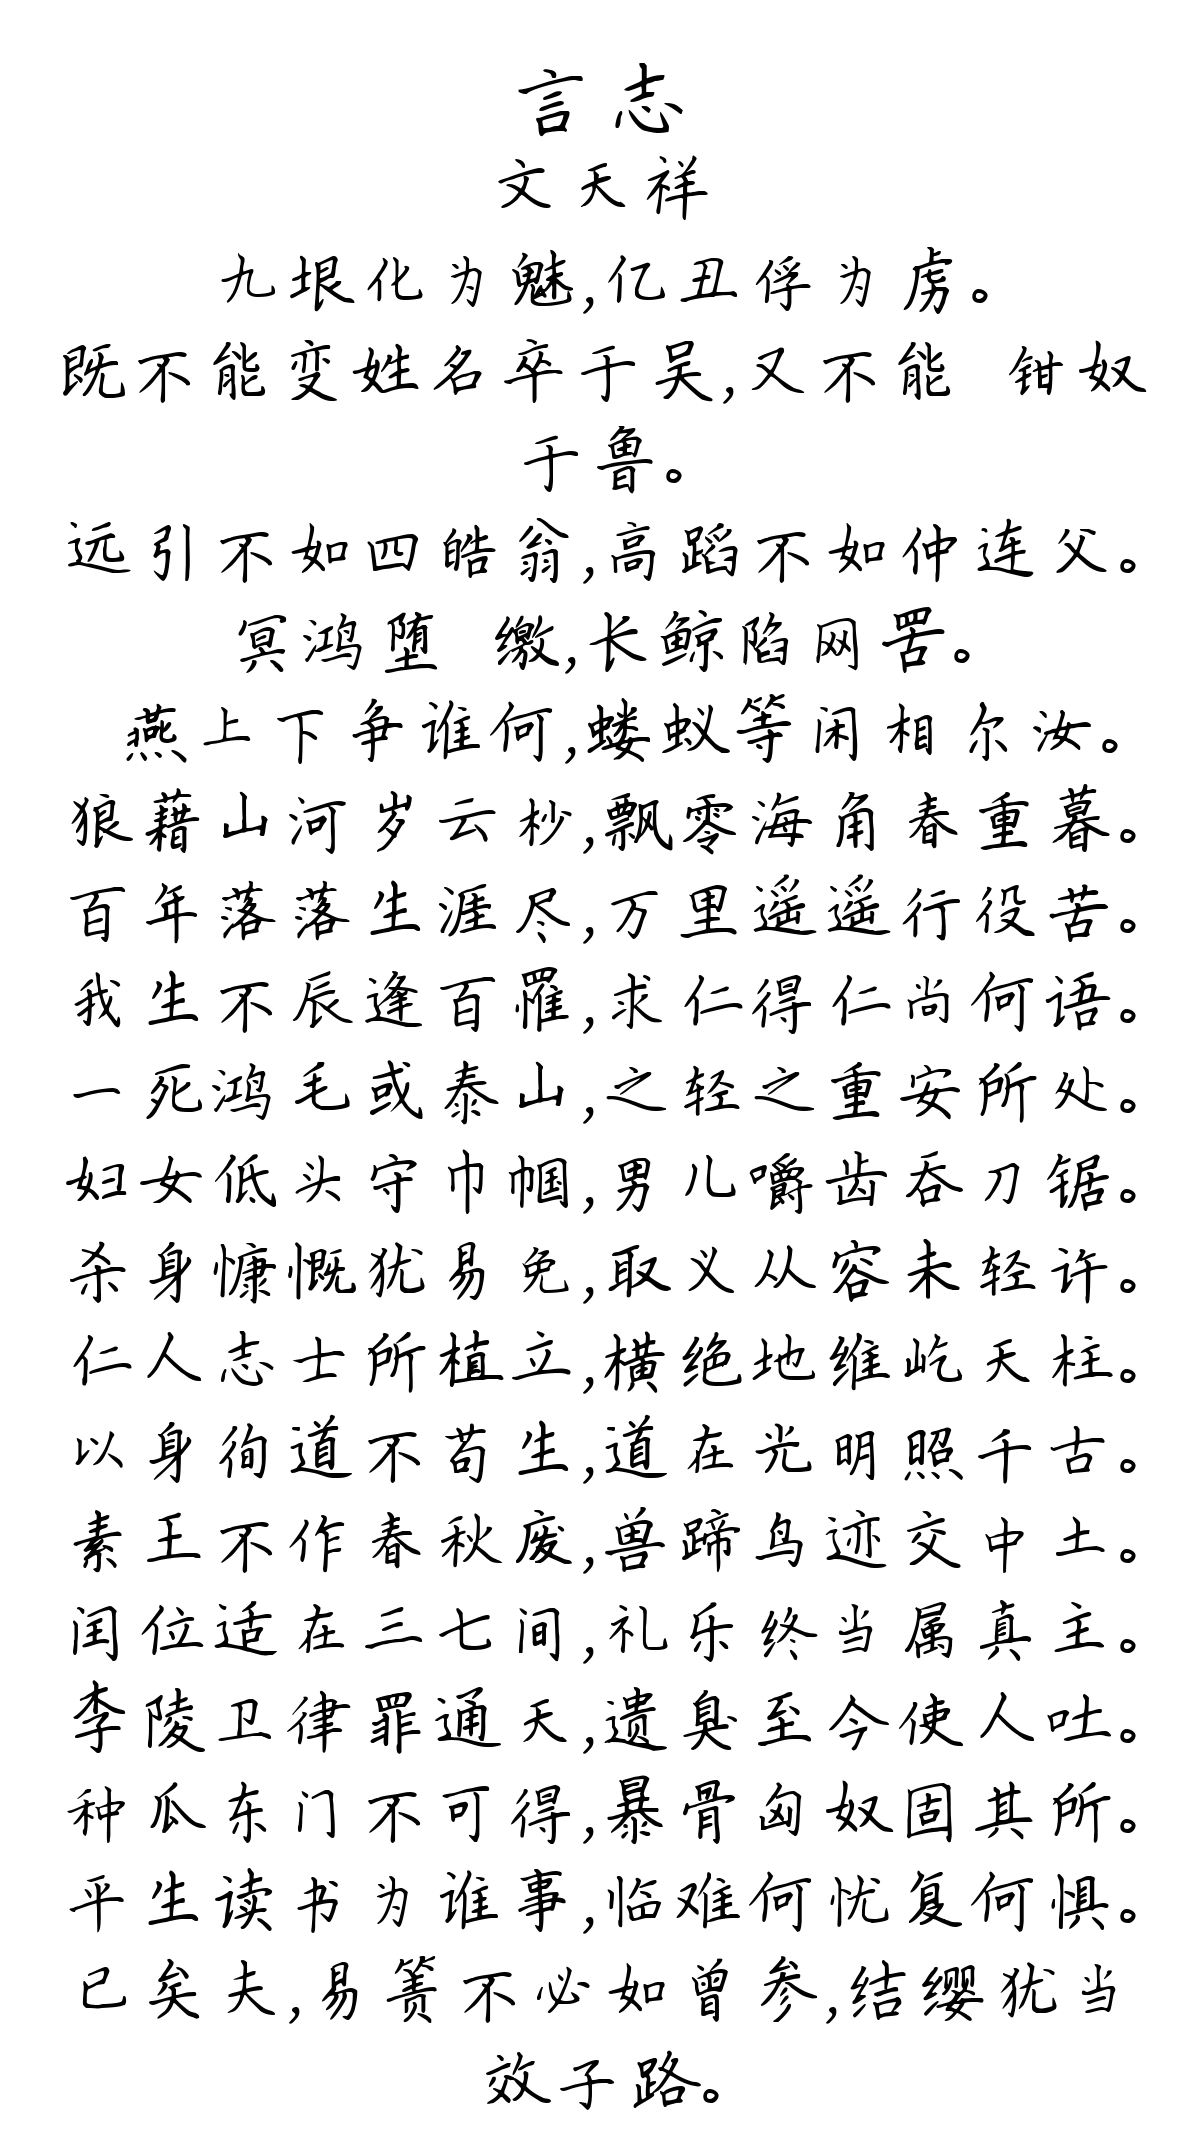 言志
文天祥
九垠化为魅,亿丑俘为虏。
既不能变姓名卒于吴,又不能 钳奴
于鲁。
远引不如四皓翁,高蹈不如仲连父。
冥鸿堕 缴,长鲸陷网罟。
燕上下争谁何,蝼蚁等闲相尔汝。
狼藉山河岁云杪,飘零海角春重暮。
百年落落生涯尽,万里遥遥行役苦。
我生不辰逢百罹,求仁得仁尚何语。
一死鸿毛或泰山,之轻之重安所处。
妇女低头守巾帼,男儿嚼齿吞刀锯。
杀身慷慨犹易免,取义从容未轻许。
仁人志士所植立,横绝地维屹天柱。
以身徇道不苟生,道在光明照千古。
素王不作春秋废,兽蹄鸟迹交中土。
闰位适在三七间,礼乐终当属真主。
李陵卫律罪通天,遗臭至今使人吐。
种瓜东门不可得,暴骨匈奴固其所。
平生读书为谁事,临难何忧复何惧。
已矣夫,易箦不必如曾参,结缨犹当
效子路。